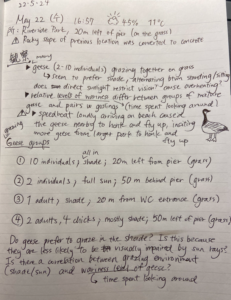 22-5-24
May 22 (수) 16:57 45% 11°C
Riverside Park, 20m left of pier (on the grass)
Rocky slope of previous location was converted to concrete
many
geese (2-10 individuals) grazing together on grass
seem to prefer shade, alternating btwn standing/sitting
does direct sunlight restrict vision? cause overheating?
relative level of wariness differ between groups of mature
geese and pairs w/ goslings (time spent looking around)
speedboat loudly arriving on beach caused
the geese nearby to honk and fly up, inciting
more geese from larger flock to honk and
fly up
grazing
Geese groups
all in
① 10 individuals; shade; 20m left from pier (grass)
② 2 individuals; full sun; 50m behind pier (grass)
③ 1 adult; shade; 20m from WC entrance (grass)
④ 2 adults, 4 chicks; mostly shade; 50m left of pier (grass)
Do geese prefer to graze in the shade? Is this because
they are less likely to be visually impaired by sun rays?
Is there a correlation between grazing environment
(shade/sun) and wariness level of geese?
time spent looking around